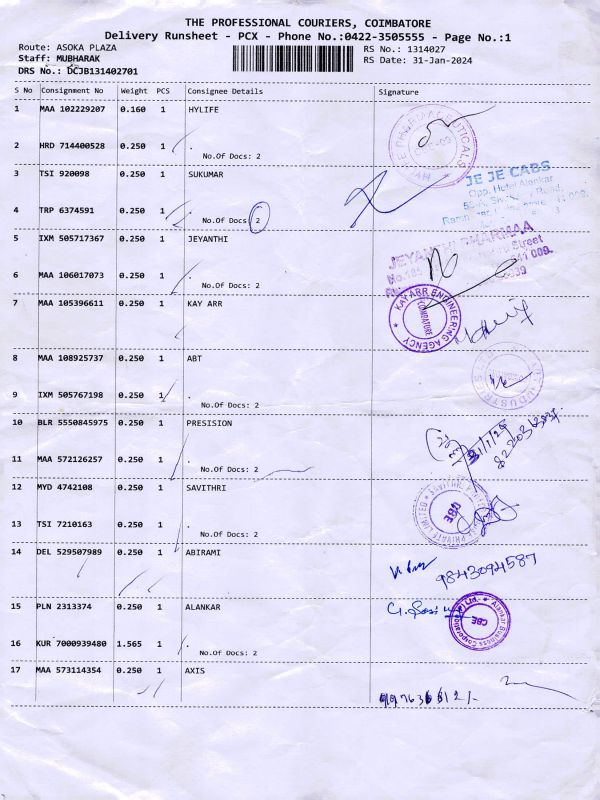 THE PROFESSIONAL COURIERS, COIMBATORE
Delivery Runsheet - PCX - Phone No.:0422-3505555 - Page No.:1
Route: ASOKA PLAZA
RS No.: 1314027
Staff: MUBHARAK
RS Date: 31-Jan-2024
DRS No.: DCJB131402701
S No Consignment No Weight PCS Consignee Details Signature
1 MAA 102229207 0.160 1 HYLIFE
2 HRD 714400528 0.250 1 .
No.Of Docs: 2
3 TSI 920098 0.250 1 SUKUMAR
JE JE CABS
Opp. Hotel Alankar
4 TRP 6374591 0.250 1 .
No.Of Docs: 2
5 IXM 505717367 0.250 1 JEYANTHI
6 MAA 106017073 0.250 1 .
No.Of Docs: 2
7 MAA 105396611 0.250 1 KAY ARR
KAY ARR ENGINEERING AGENCY
COIMBATORE
8 MAA 108925737 0.250 1 ABT
9 IXM 505767198 0.250 1 .
No.Of Docs: 2
10 BLR 5550845975 0.250 1 PRESISION
11 MAA 572126257 0.250 1 .
No.Of Docs: 2
12 MYD 4742108 0.250 1 SAVITHRI
PRIVATE LIMITED
CBE
13 TSI 7210163 0.250 1 .
No.Of Docs: 2
14 DEL 529507989 0.250 1 ABIRAMI
9843094587
15 PLN 2313374 0.250 1 ALANKAR
CBE
16 KUR 7000939480 1.565 1 .
No.Of Docs: 2
17 MAA 573114354 0.250 1 AXIS